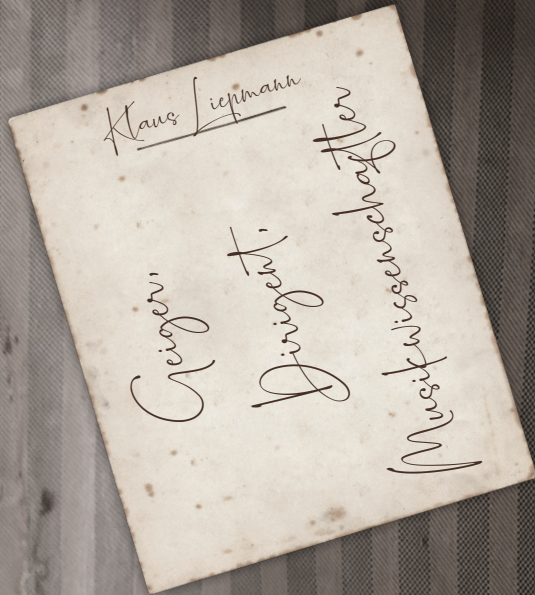 Klaus Liepmann
Geiger,
Dirigent,
Musikwissenschaftler